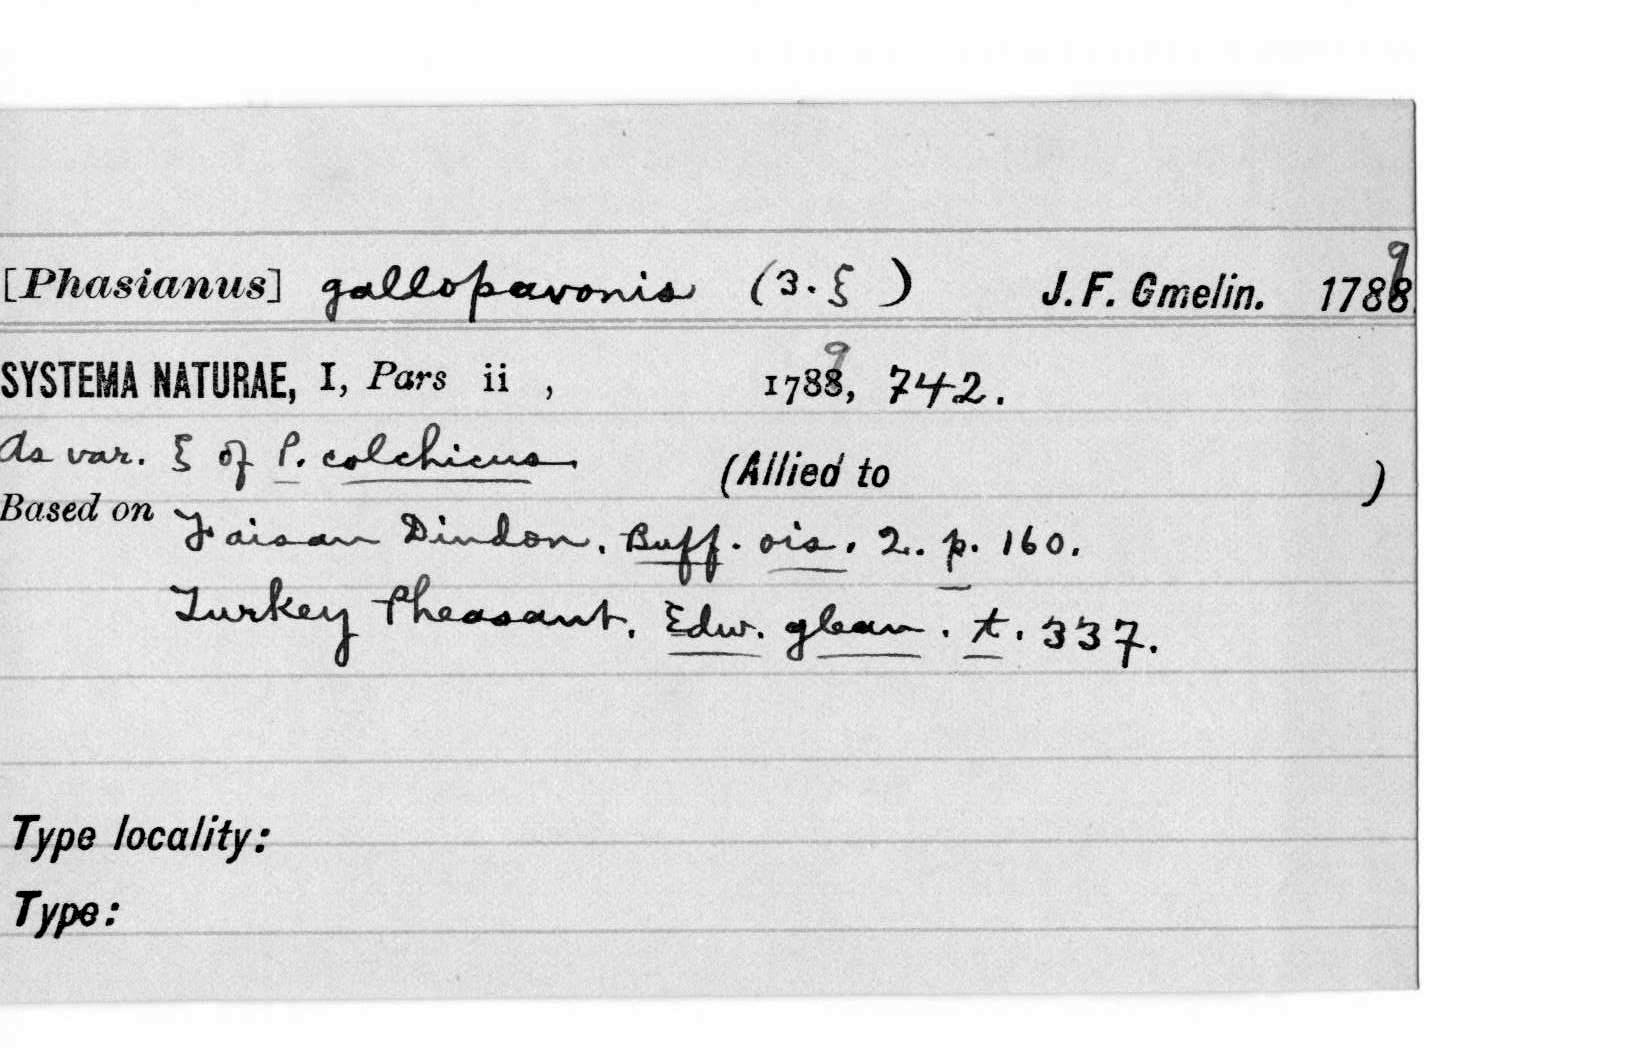 [Phasianus] gallopavonis (3. ξ ) J. F. Gmelin. 1789
SYSTEMA NATURAE, I, Pars ii , 1789, 742.
As var. ξ of P. colchicus (Allied to )
Based on
Faisan Dindon. Buff. ois. 2. p. 160.
Turkey Pheasant. Edw. glean. t. 337.
Type locality:
Type: